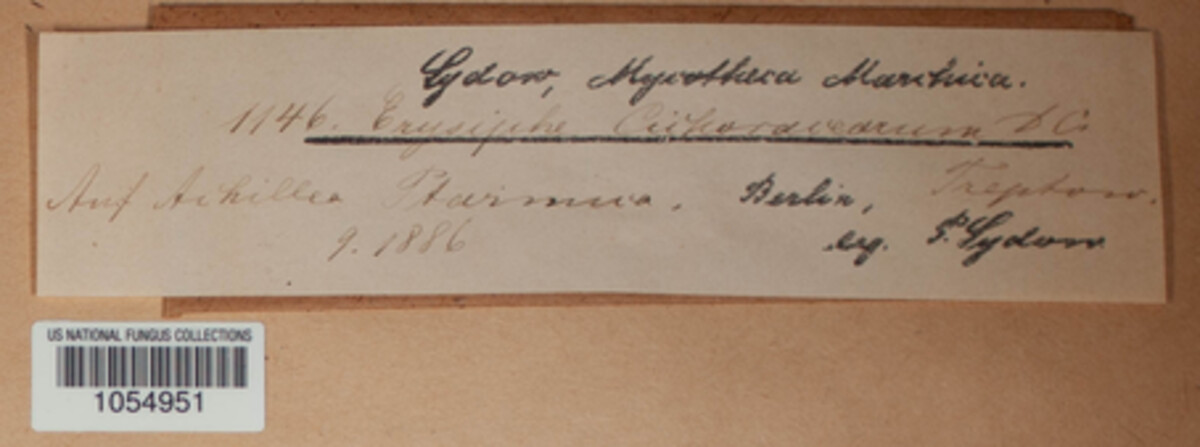 Sydow, Mycotheca Marchica.
1146. Erysiphe Cichoracearum DC.
Auf Achillea Ptarmica. Berlin, Treptow.
9. 1886 leg. P. Sydow
US NATIONAL FUNGUS COLLECTIONS
1054951